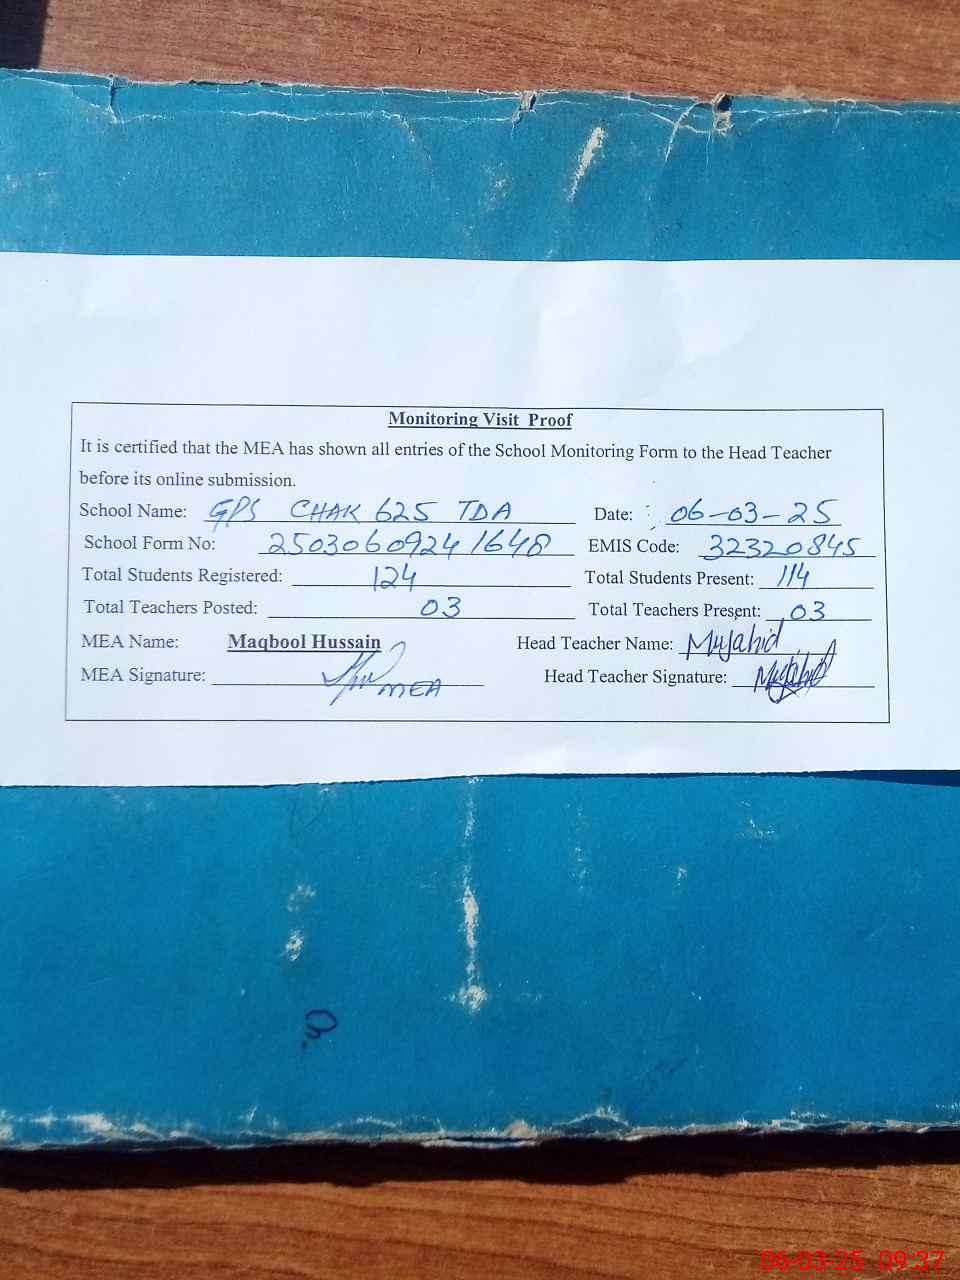 Monitoring Visit Proof
It is certified that the MEA has shown all entries of the School Monitoring Form to the Head Teacher
before its online submission.
School Name: GPS CHAK 625 TDA Date: 06-03-25
School Form No: 25030609241648 EMIS Code: 32320845
Total Students Registered: 124 Total Students Present: 114
Total Teachers Posted: 03 Total Teachers Present: 03
MEA Name: Maqbool Hussain Head Teacher Name: Mujahid
MEA Signature: MEA Head Teacher Signature: Mujahid
06-03-25 09:37